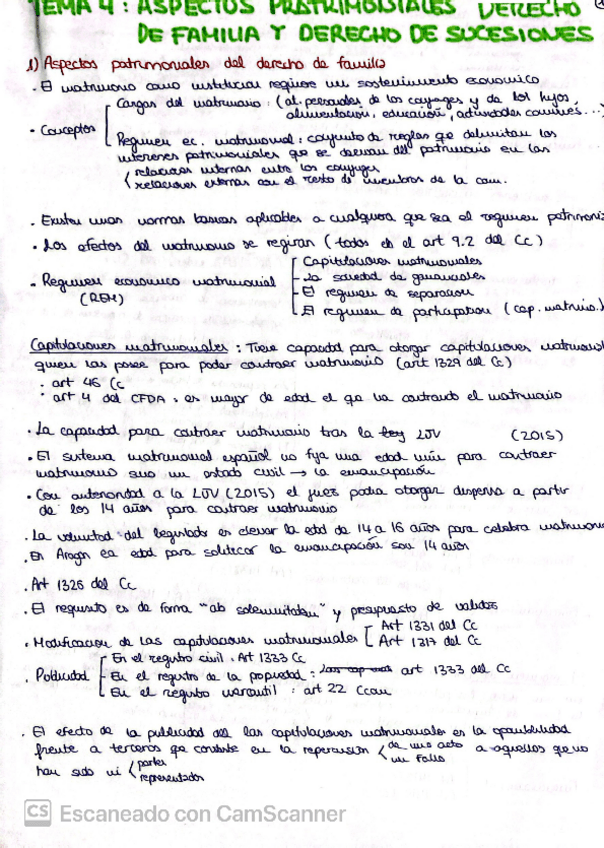 TEMA 4: ASPECTOS PATRIMONIALES DERECHO
DE FAMILIA Y DERECHO DE SUCESIONES
1) Aspectos patrimoniales del derecho de familia
· El matrimonio como institución requiere un sostenimiento económico
· Conceptos
Cargas del matrimonio: (al. personales de los conyuges y de los hijos,
alimentacion, educación, actividades comunes...)
Regimen ec. matrimonial: conjunto de reglas que delimitan los
intereses patrimoniales que se derivan del patrimonio en las
relaciones internas entre los conyuges
relaciones externas con el resto de miembros de la com.
· Existen unas normas basicas aplicables a cualquiera que sea el regimen patrimoni
· Los efectos del matrimonio se regiran (todos en el art 9.2 del Cc)
· Regimen económico matrimonial
(REM)
Capitulaciones matrimoniales
La sociedad de gananciales
El regimen de separacion
El regimen de participation (cap. matrimo.)
Capitulaciones matrimoniales: Tiene capacidad para otorgar capitulaciones matrimonial
quien las posee para poder contraer matrimonio (art 1329 del Cc)
· art 46 Cc
· art 4 del CFDA: es mayor de edad el que ha contraido el matrimonio
· La capacidad para contraer matrimonio tras la ley LJV (2015)
· El sistema matrimonial español no fija una edad mín para contraer
matrimonio sino un estado civil → la emancipación
· Con anterioridad a la LJV (2015) el juez podia otorgar dispensa a partir
de los 14 años para contraer matrimonio
· La voluntad del legislador es elevar la edad de 14 a 16 años para celebrar matrimon
· En Aragon la edad para solicitar la emancipación son 14 años
· Art 1326 del Cc
· El requisito es de forma "ab solemnitatem" y presupuesto de validez
· Modificacion de las capitulaciones matrimoniales
Art 1331 del Cc
Art 1317 del Cc
· Publicidad
En el registro civil. Art 1333 Cc
En el registro de la propiedad: art 1333 del Cc
En el registro mercantil: art 22 Ccom
· El efecto de la publicidad de las capitulaciones matrimoniales es la oponibilidad
frente a terceros que consiste en la repercusión de un acto a aquellos que no
un fallo
han sido ni partes
representados
CS Escaneado con CamScanner